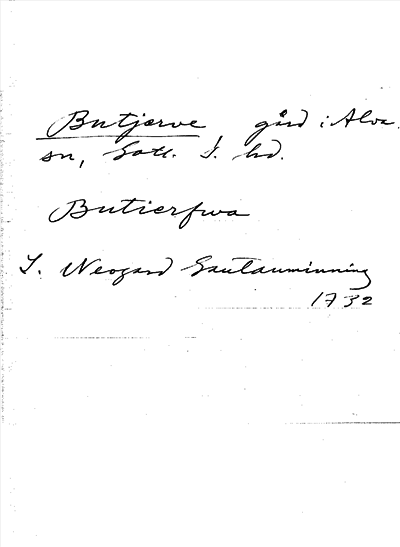 Butjerve, gård i Alva
sn, Gotl. S. hd.
Butierfwa
I. Neogard Gautauminning
1732